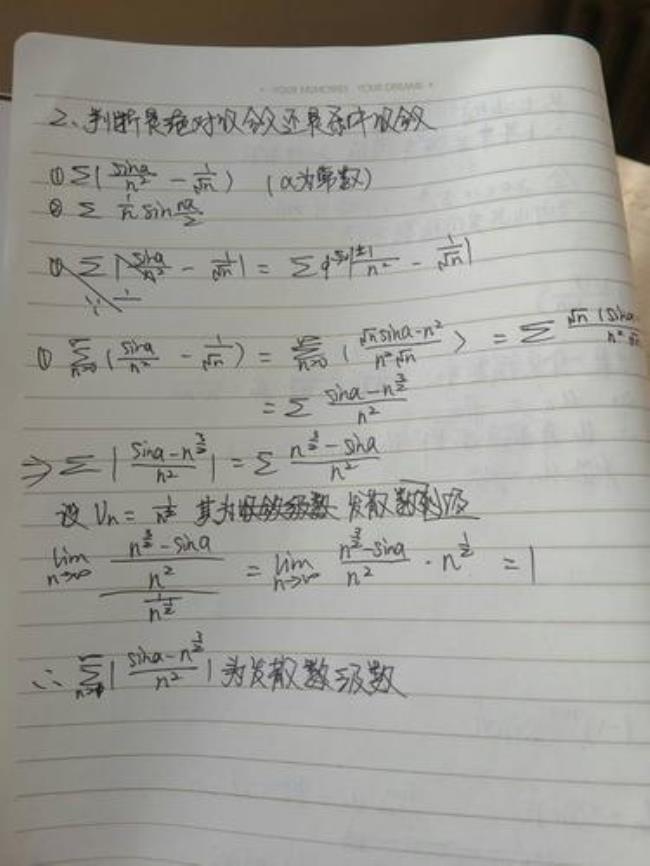 YOUR MEMORIES YOUR DREAMS
2、判断是绝对收敛还是条件收敛
① Σ(sina/n² - 1/√n) (a为常数)
② Σ 1/n sin na/2
① Σ|sina/n² - 1/√n| = Σ ±1/n² - 1/√n|
∵
① Σ(n=0,∞)(sina/n² - 1/√n) = Σ(n=0,∞)(√n sina-n²/n²√n) = Σ √n(sina-/n²√n
= Σ sina-n^(3/2)/n²
⇒ Σ|sina-n^(3/2)/n²| = Σ n^(3/2)-sina/n²
设 Un = 1/n^(1/2) 其为收敛级数 发散数级
lim(n→∞) (n^(3/2)-sina/n²)/(1/n^(1/2)) = lim(n→∞) n^(3/2)-sina/n² · n^(1/2) = 1
∴ Σ|sina-n^(3/2)/n²| 为发散数级数